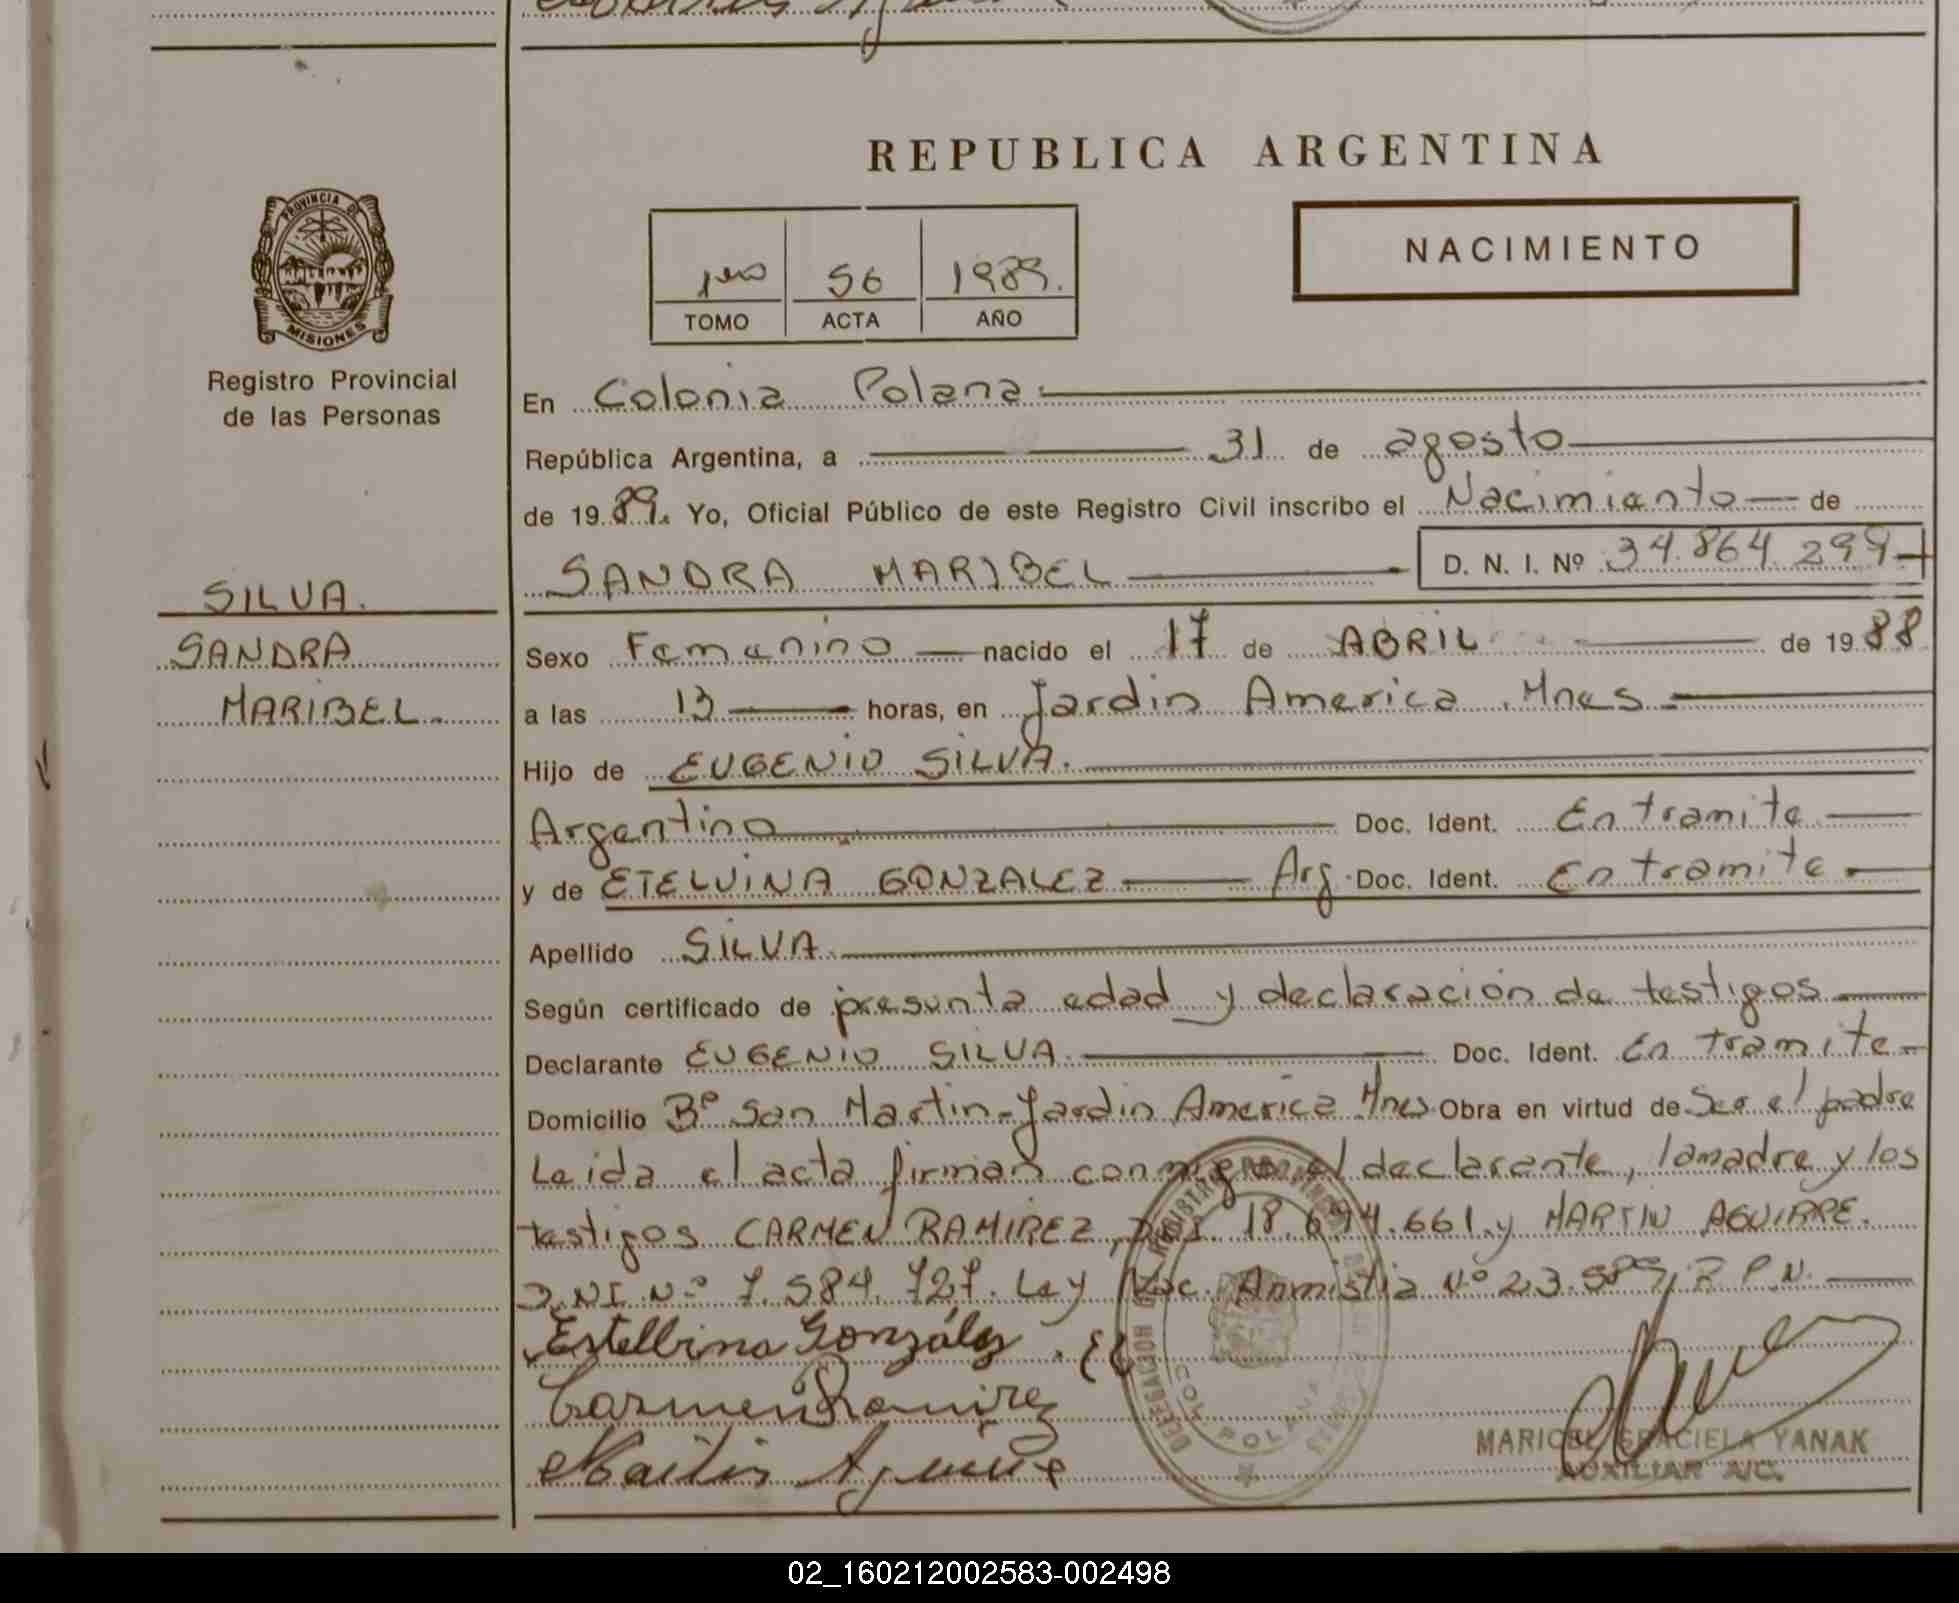 REPUBLICA ARGENTINA
PROVINCIA DE
MISIONES
Registro Provincial
de las Personas
1ero 56 1989.
TOMO ACTA AÑO
NACIMIENTO
En Colonia Polana
República Argentina, a 31 de agosto
de 1989. Yo, Oficial Público de este Registro Civil inscribo el Nacimiento de
SANDRA MARIBEL D. N. I. Nº 34.864.299
SILVA.
SANDRA
MARIBEL.
Sexo Femenino nacido el 17 de ABRIL de 1988
a las 13 horas, en Jardin America, Mnes
Hijo de EUGENIO SILVA.
Argentino Doc. Ident. En tramite
y de ETELVINA GONZALEZ Arg. Doc. Ident. En tramite
Apellido SILVA
Según certificado de presunta edad y declaración de testigos
Declarante EUGENIO SILVA. Doc. Ident. En tramite
Domicilio Bº San Martin-Jardin America Mnes Obra en virtud de Ser el padre
Leida el acta firman conmigo el declarante, la madre y los
testigos CARMEN RAMIREZ, 18.694.661 y MARTIN AGUIRRE.
D.NI Nº 7.584.727. Ley Nac. Anmistia Nº 23.
Estelbina González
Carmen Ramirez
Aguirre
COL. POLANA
MARICEL GRACIELA YANAK
AUXILIAR A/C.
02_160212002583-002498